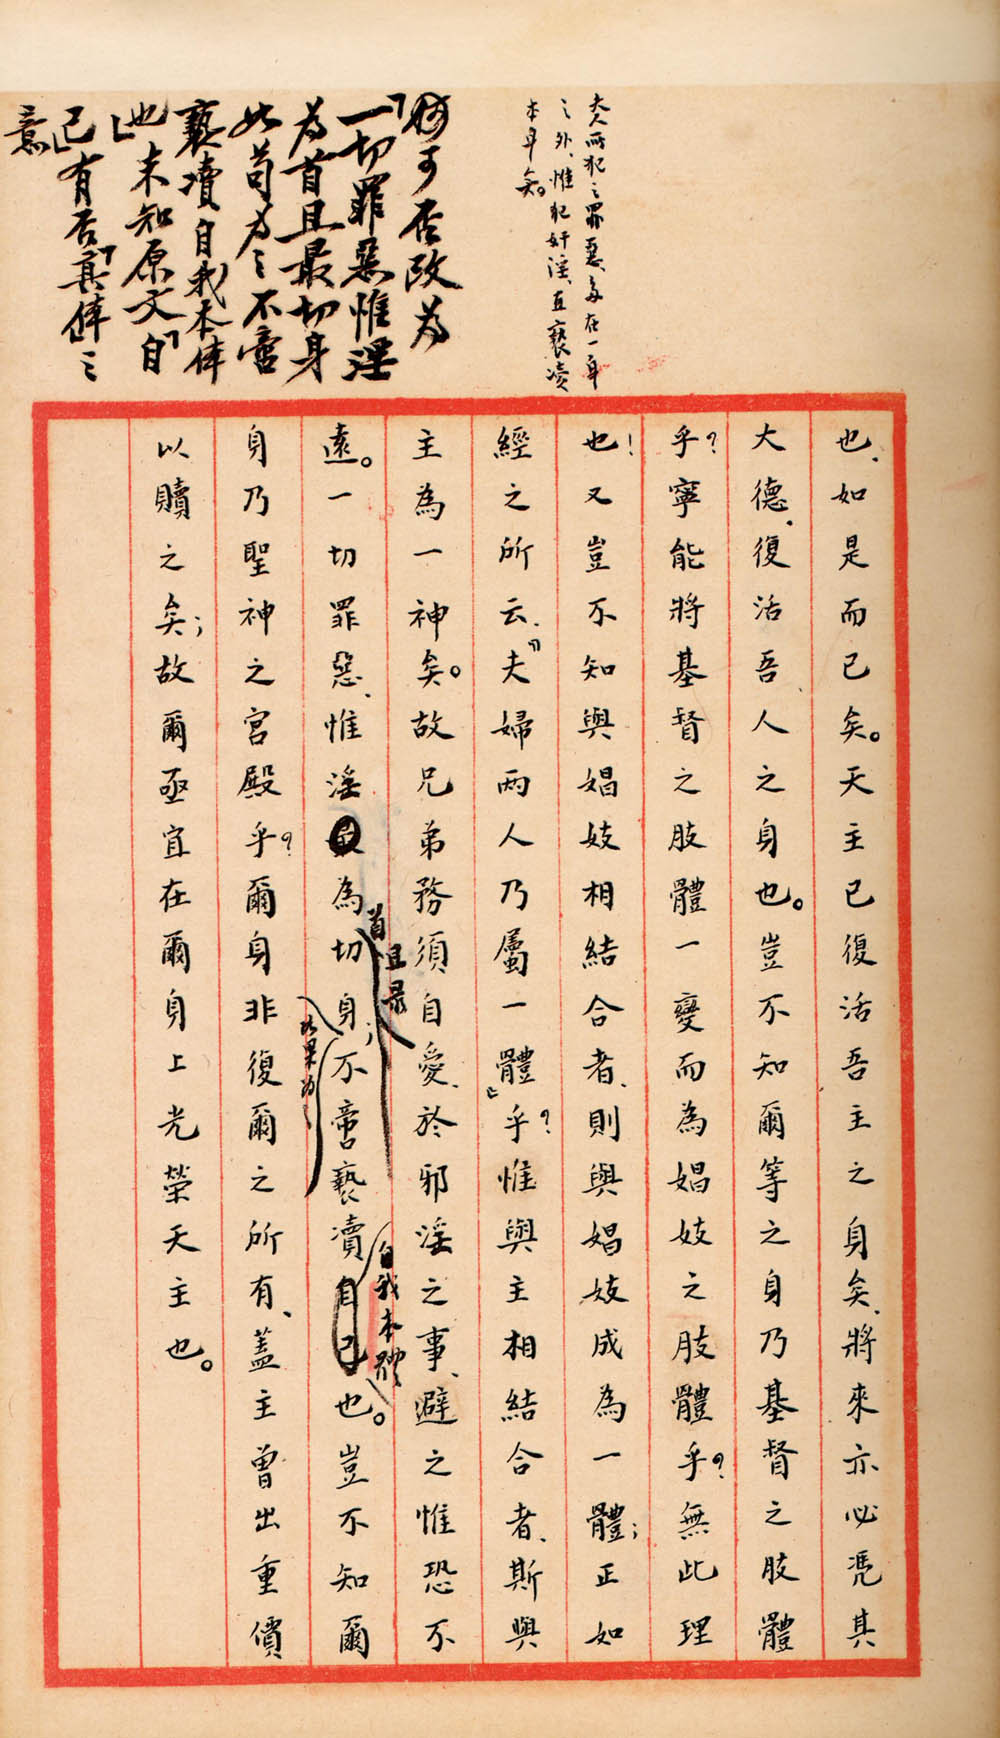 夫人所犯之罪惡、多在一身
之外、惟犯奸淫、直褻瀆
本身矣。
可否改為
「一切罪惡惟淫
為首且最切身
如苟為之不啻
褻瀆自我本体
也」未知原文「自
己」有否「真体」之
意
也、如是而已矣。天主已復活吾主之身矣、將來亦必凭其
大德、復活吾人之身也。豈不知爾等之身乃基督之肢體
乎?寧能將基督之肢體一變而為娼妓之肢體乎?無此理
也!又豈不知與娼妓相結合者、則與娼妓成為一體;正如
經之所云、「夫婦兩人乃屬一體」乎?惟與主相結合者、斯與
主為一神矣。故兄弟務須自愛、於邪淫之事、避之惟恐不
首且最
自我本體
遠。一切罪惡、惟淫為切身;不啻褻瀆自己也。豈不知爾
身乃聖神之宮殿乎?爾身非復爾之所有、蓋主曾出重價
以贖之矣;故爾亟宜在爾身上光榮天主也。